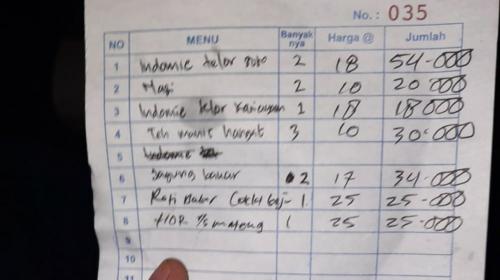 No.: 035
NO MENU Banyak nya Harga @ Jumlah
1 Indomie telor soto 2 18 54.000
2 Nasi 2 10 20.000
3 Indomie telor 1 18 18000
4 Teh manis hangat 3 10 30.000
5 Indomie
6 Jagung bakar 2 17 34.000
7 Roti Bakar Coklat keju 1 25 25.000
8 1/2 matang 1 25 25.000
9
10
11